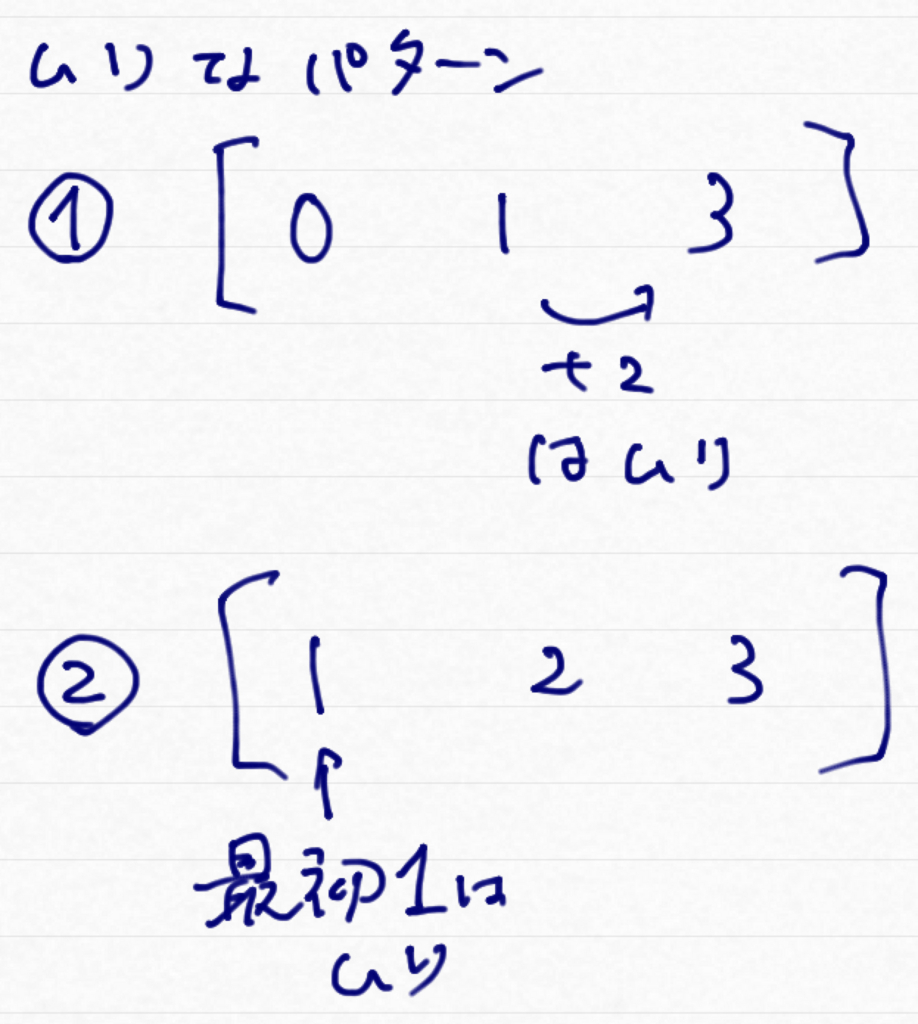 ありなパターン
① [ 0 1 3 ]
+2
はあり
② [ 1 2 3 ]
↑
最初1は
あり